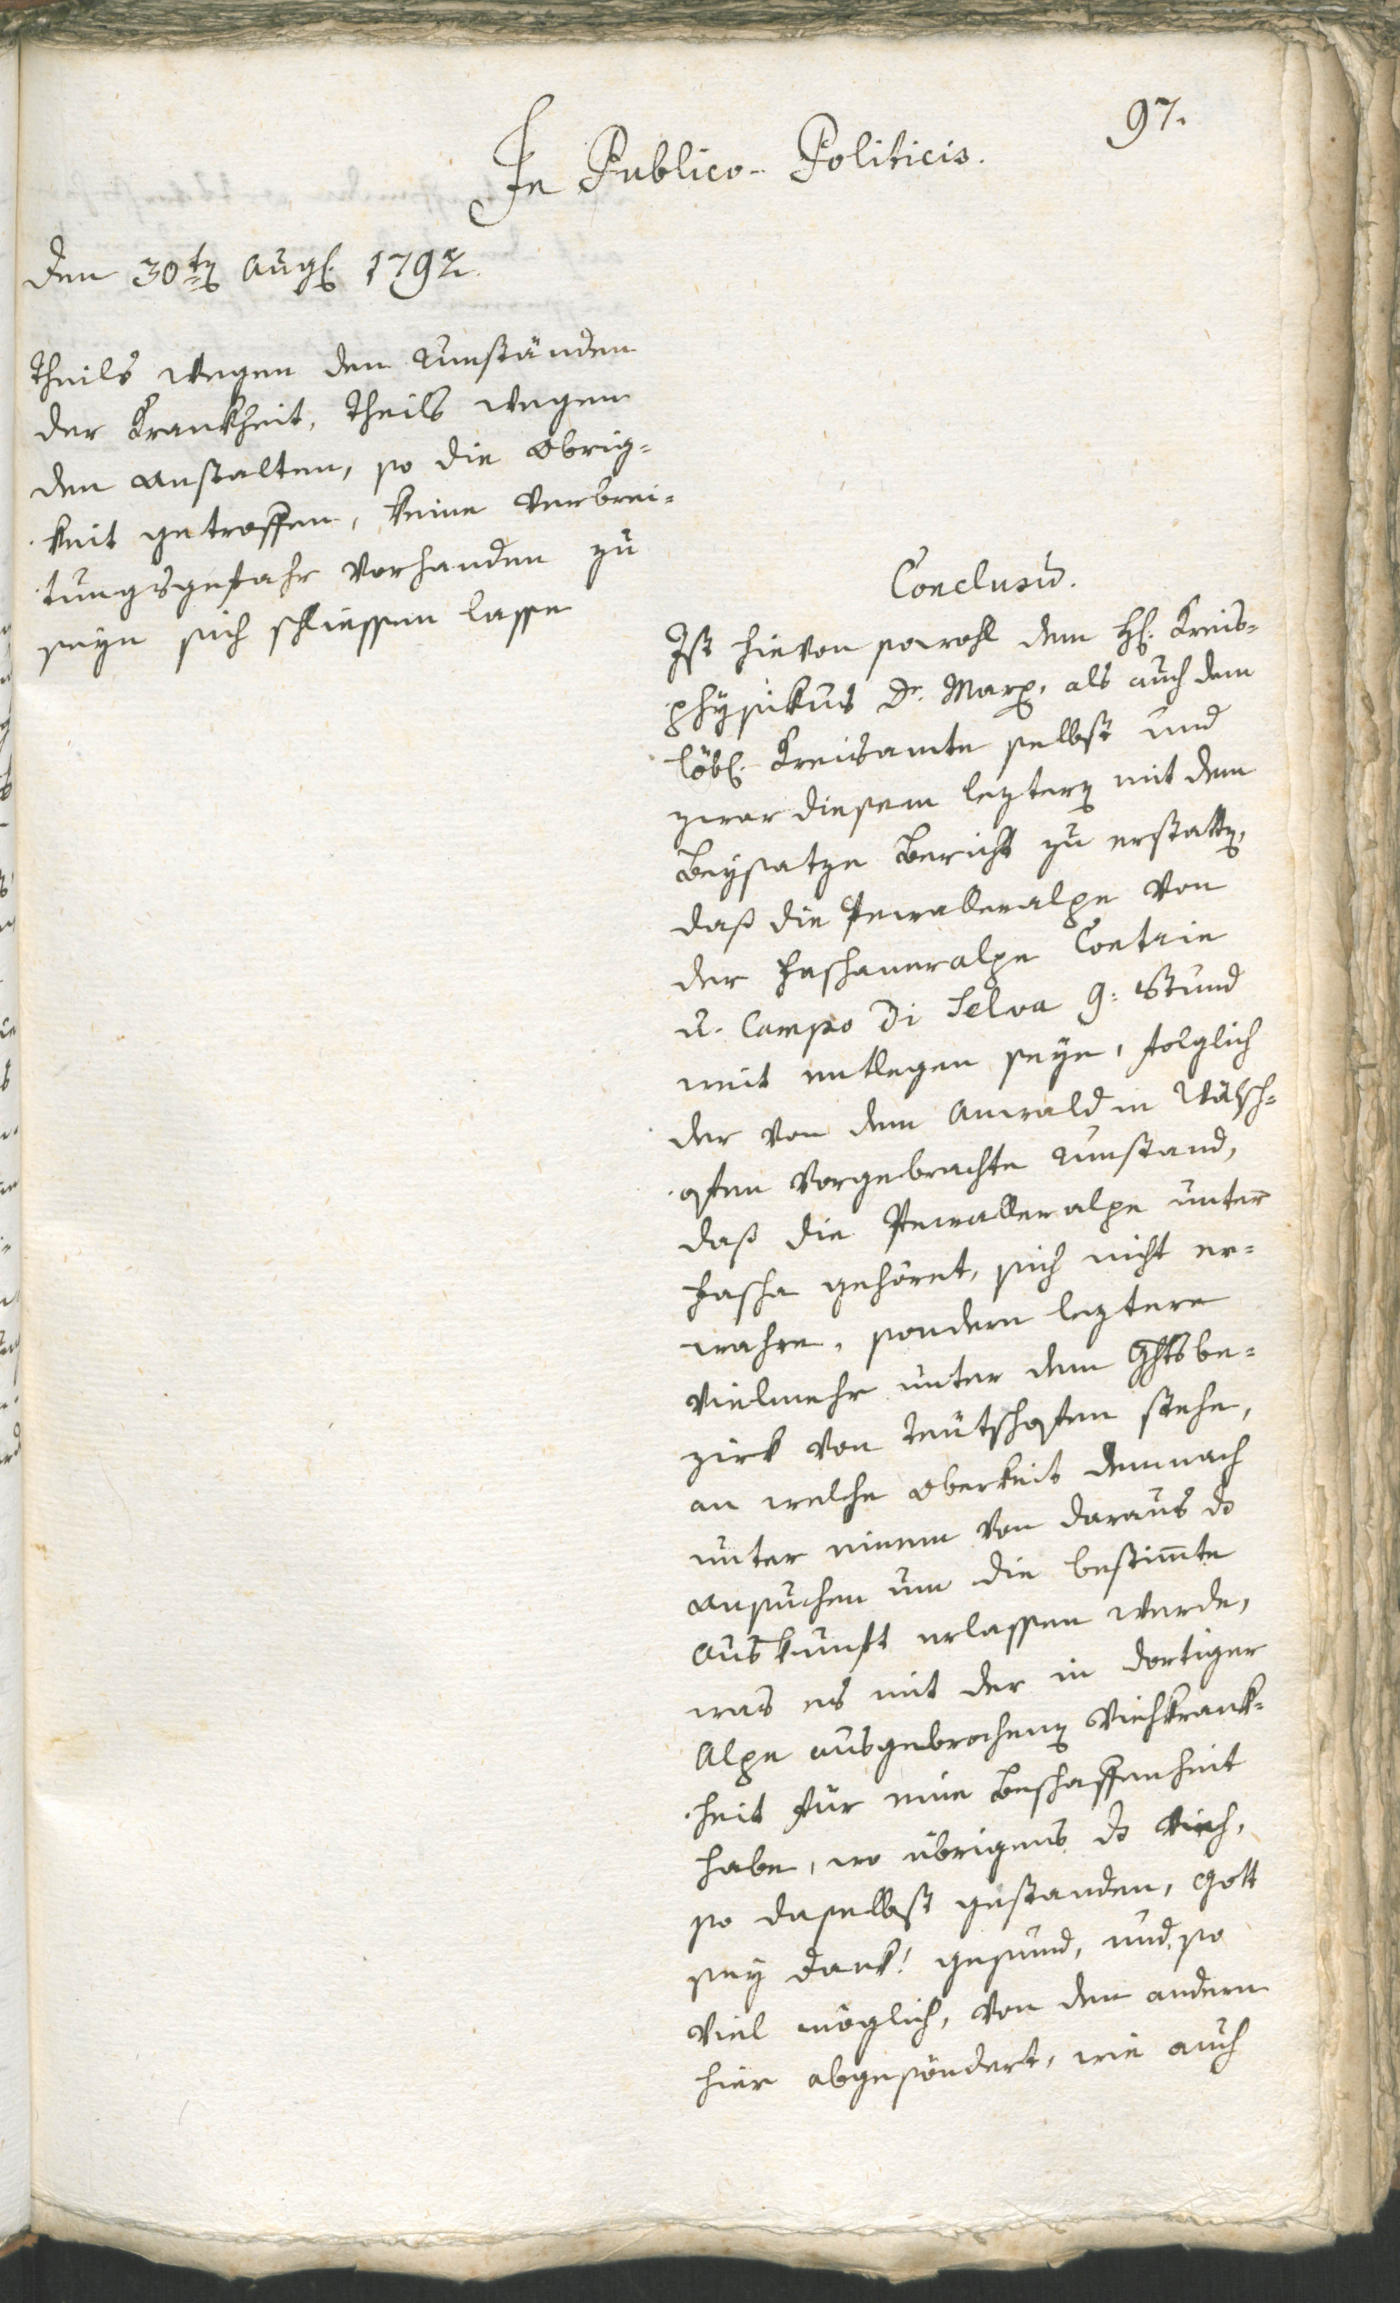 97.
In Publico-Politicis.
den 30ten Augs. 1792.
theils wegen den Umständen
der Krankheit, theils wegen
den Anstalten, so die Obrig=
keit getroffen, keine Verbrei=
tungsgefahr vorhanden zu
seyn sich schliessen lasse
Conclusum.
Ist hievon sowohl dem H. Kreis=
physikus Dr. Marx, als auch dem
löbl. Kreisamte selbst und
zwar diesem leztern mit dem
Beysatze Bericht zu erstatten,
daß die von
der Faschaneralpe Contrin
u. Campo Di Selva 9: Stund
weit entlegen seye, folglich
der von dem Anwald in Wälsch=
ofen vorgebrachte Umstand,
daß die unter
Fascha gehöret, sich nicht er=
wahre, sondern leztere
vielmehr unter dem Ghtsbe=
zirk von Teutschofen stehe,
an welche Oberkeit demnach
unter einem von daraus ds
Ansuchen um die bestimte
Auskunft erlassen werde,
was es mit der in dortiger
Alpe ausgebrochenen Viehkrank=
heit für eine Beschaffenheit
habe, wo übrigens ds Vieh,
so daselbst gestanden, Gott
sey Dank! gesund, und so
viel möglich, von dem andern
hier abgesöndert, wie auch